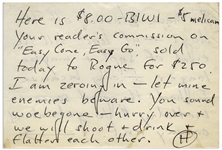 Here is $8.00 - BIWI - $5 melican
Your reader's commission on
"Easy Cone, Easy Go" sold
today to Rogue for $250
I am zeroing in - let mine
enemies beware. You sound
woebegone - hurry over +
we will shoot + drink +
flatter each other. H